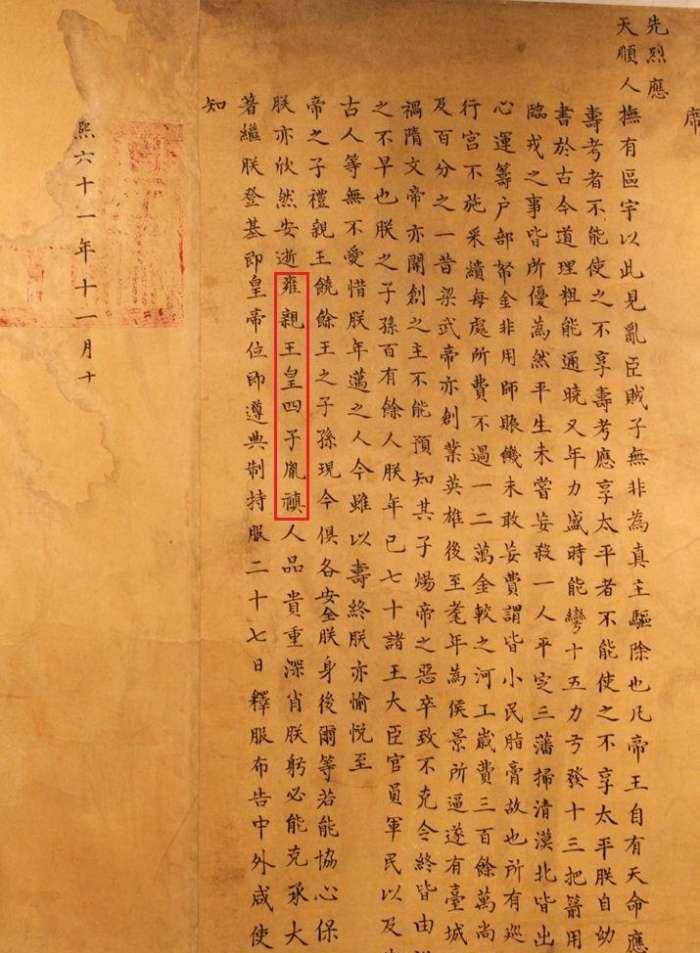 席
先烈應
天順人撫有區宇以此見亂臣賊子無非為真主驅除也凡帝王自有天命應
壽考者不能使之不享壽考應享太平者不能使之不享太平朕自幼
書於古今道理粗能通曉又年力盛時能彎十五力弓發十三把箭用
臨戎之事皆所優為然平生未嘗妄殺一人平定三藩掃清漠北皆出
心運籌戶部帑金非用師賑饑未敢妄費謂皆小民脂膏故也所有巡
行宮不施采繢每處所費不過一二萬金較之河工歲費三百餘萬尚
及百分之一昔梁武帝亦創業英雄後至耄年為侯景所逼遂有臺城
禍隋文帝亦開創之主不能預知其子煬帝之惡卒致不克令終皆由
之不早也朕之子孫百有餘人朕年已七十諸王大臣官員軍民以及
古人等無不愛惜朕年邁之人今雖以壽終朕亦愉悅至
帝之子禮親王饒餘王之子孫現今俱各安全朕身後爾等若能協心保
朕亦欣然安逝雍親王皇四子胤禛人品貴重深肖朕躬必能克承大
著繼朕登基即皇帝位即遵典制持服二十七日釋服布告中外咸使
知
熙六十一年十一月十